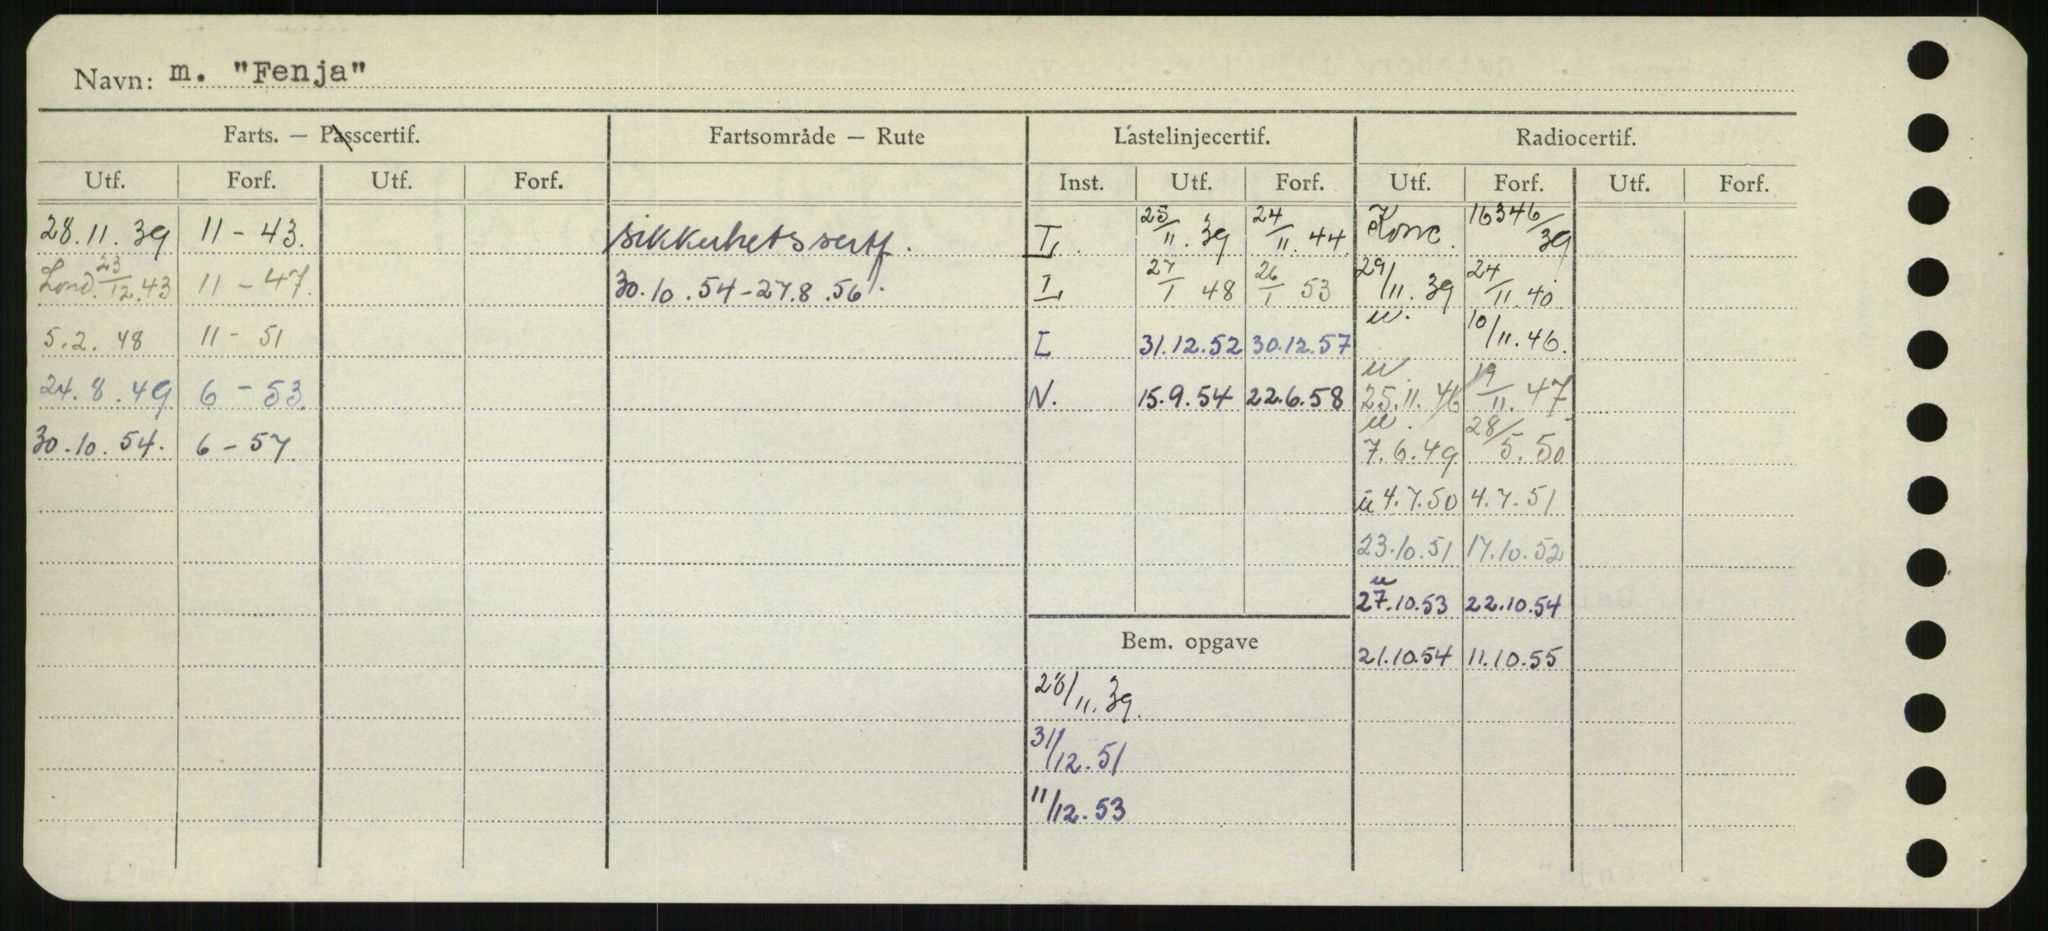 Navn: m. "Fenja"
Farts. — Passcertif. Fartsområde — Rute Lastelinjecertif. Radiocertif.
Utf. Forf. Utf. Forf. Inst. Utf. Forf. Utf. Forf. Utf. Forf.
28.11.39 11-43. 25/11.39 24/11.44 Konc. 16346/39
Lond. 23/12.43 11-47. 30.10.54-27.8.56 27/1 48 26/1 53 29/11.39 24/11.40
5.2.48 11-51 I 31.12.52 30.12.57 u. 10/11.46.
24.8.49 6-53. N. 15.9.54 22.6.58 u 25.11.46 19/11.47
30.10.54. 6-57. u. 7.6.49 28/5.50
u 4.7.50 4.7.51
23.10.51 17.10.52
u 27.10.53 22.10.54
Bem. opgave 21.10.54 11.10.55
28/11.39.
31/12.51
11/12.53